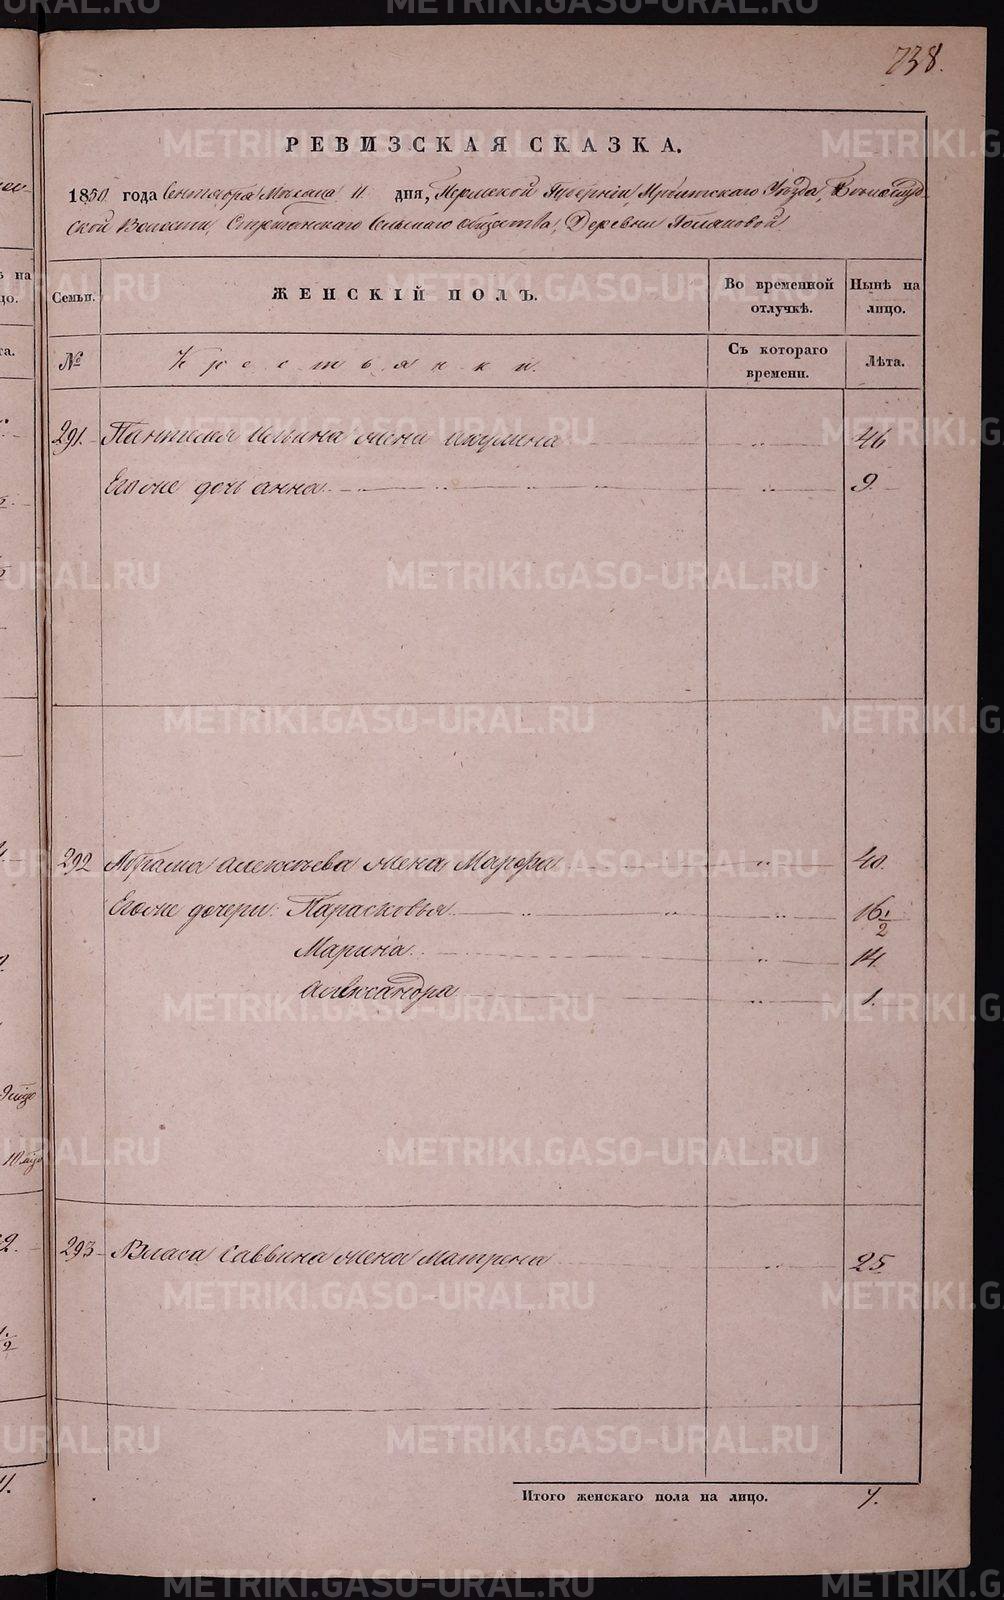 738.
РЕВИЗСКАЯ СКАЗКА.
1850 года Сентября Месяца 11 дня, Пермской Губернии Ирбитского Уѣзда,
ской Волости, Сельскаго общества, Деревни
Семьи. ЖЕНСКІЙ ПОЛЪ. Во временной отлучкѣ. Нынѣ на лицо.
№ Крестьянки. Съ котораго времени. Лѣта.
291. Пантелея Ильина жена Акулина " 46
Его же дочь Анна " 9.
292 Абрама Алексѣева жена Марфа " 40.
Его же дочери: Парасковья " 16 1/2
Марина " 14
Александра " 1.
293 Власа Саввина жена Матрена " 25
Итого женскаго пола на лицо. 7.
METRIKI.GASO-URAL.RU